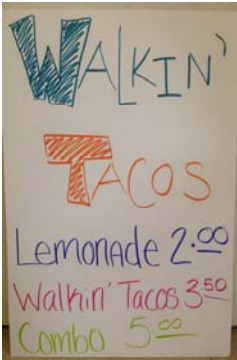 WALKIN'
TACOS
Lemonade 2.00
Walkin' Tacos 3.50
Combo 5.00